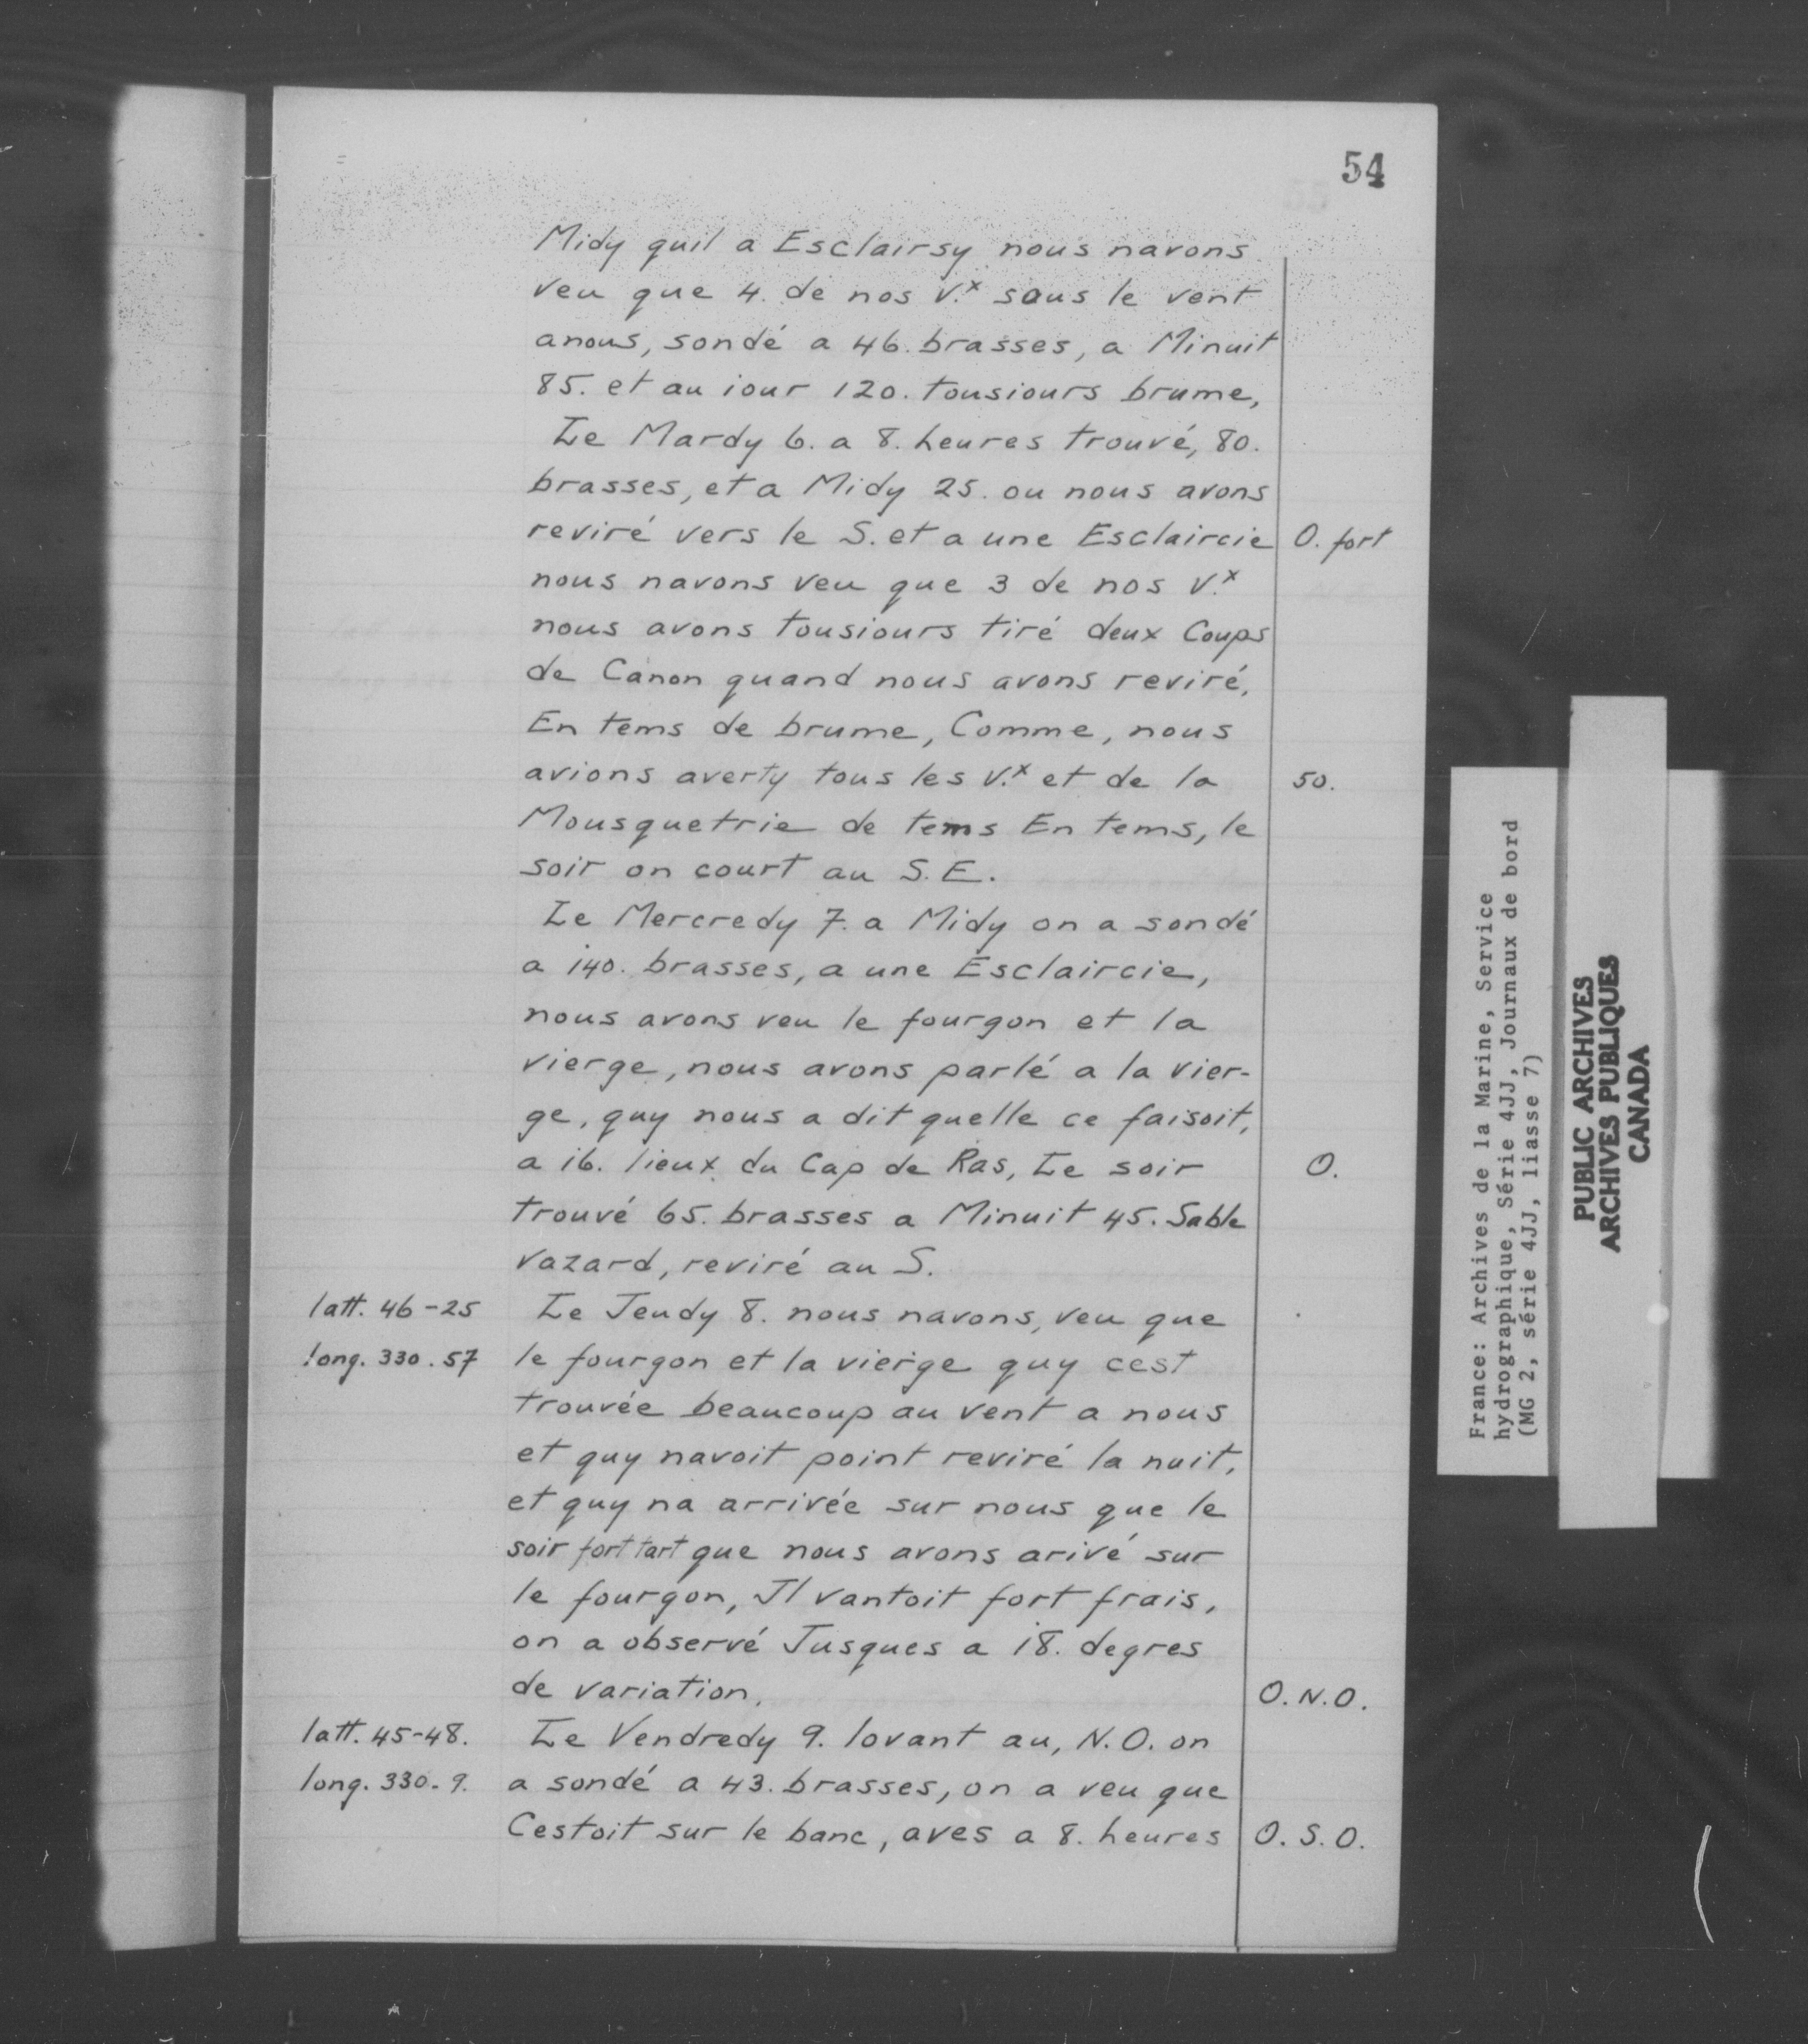 54
Midy quil a Esclairsy nous navons
veu que 4. de nos v.x sous le vent
anous, sondé a 46. brasses, a Minuit
85. et au iour 120. tousiours brume,
Le Mardy 6. a 8. heures trouvé, 80.
brasses, et a Midy 25. ou nous avons
reviré vers le S. et a une Esclaircie O. fort
nous navons veu que 3 de nos v.x
nous avons tousiours tiré deux Coups
de Canon quand nous avons reviré,
En tems de brume, Comme, nous
avions averty tous les v.x et de la 50.
Mousquetrie de tems En tems, le
soir on court au S. E.
Le Mercredy 7. a Midy on a sondé
a 140. brasses, a une Esclaircie,
nous avons veu le fourgon et la
vierge, nous avons parlé a la vier-
ge, quy nous a dit quelle ce faisoit,
a 16. lieux du Cap de Ras, Le soir O.
trouvé 65. brasses a Minuit 45. Sable
vazard, reviré au S.
latt. 46-25 Le Jeudy 8. nous navons, veu que
long. 330. 57 le fourgon et la vierge quy cest
trouvée beaucoup au vent a nous
et quy navoit point reviré la nuit,
et quy na arrivée sur nous que le
soir fort tart que nous avons arivé sur
le fourgon, Jl vantoit fort frais,
on a observé Jusques a 18. degres
de variation. O. N. O.
latt. 45-48. Le Vendredy 9. lovant au, N. O. on
long. 330-9. a sondé a 43. brasses, on a veu que
Cestoit sur le banc, aves a 8. heures O. S. O.
France: Archives de la Marine, Service
hydrographique, Série 4JJ, Journaux de bord
(MG 2, série 4JJ, liasse 7)
PUBLIC ARCHIVES
ARCHIVES PUBLIQUES
CANADA